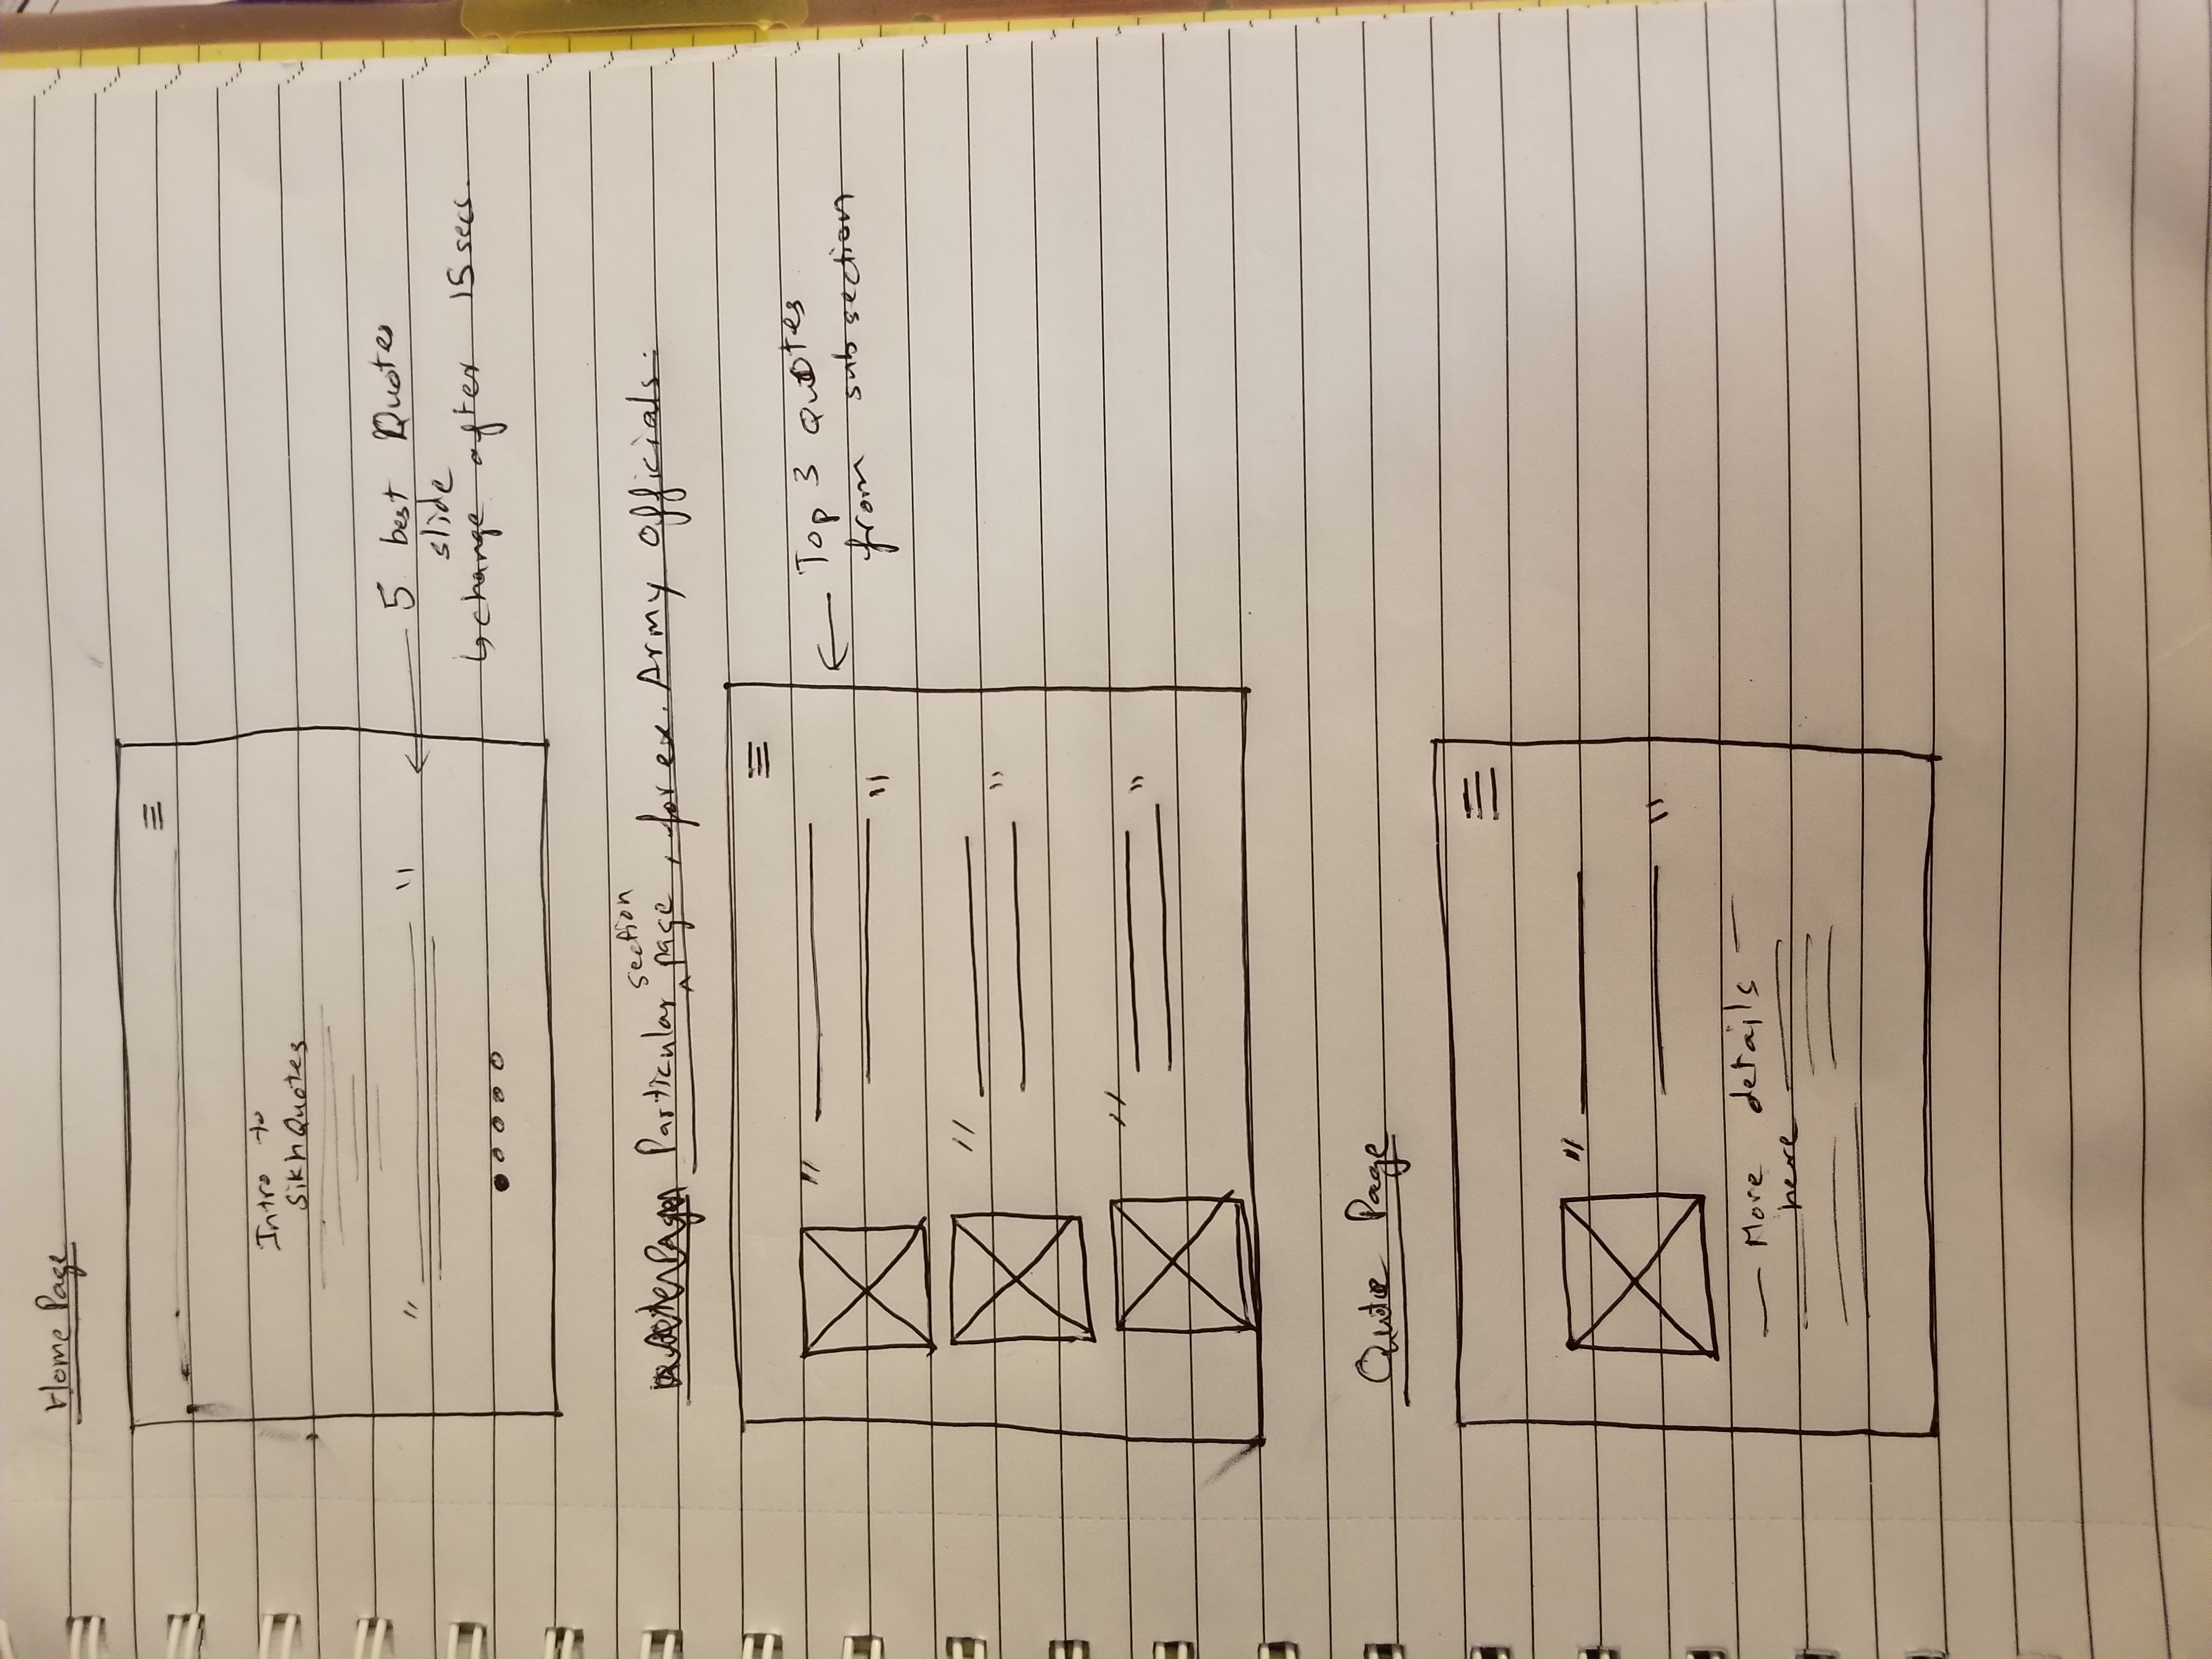 Home Page
Intro to
SikhQuotes
" "
5 best Quotes
slide
↳ change after 15 secs.
Particular section page, for ex. Army Officials.
Top 3 Quotes
from subsection
" "
" "
" "
Quote Page
" "
— More details —
here